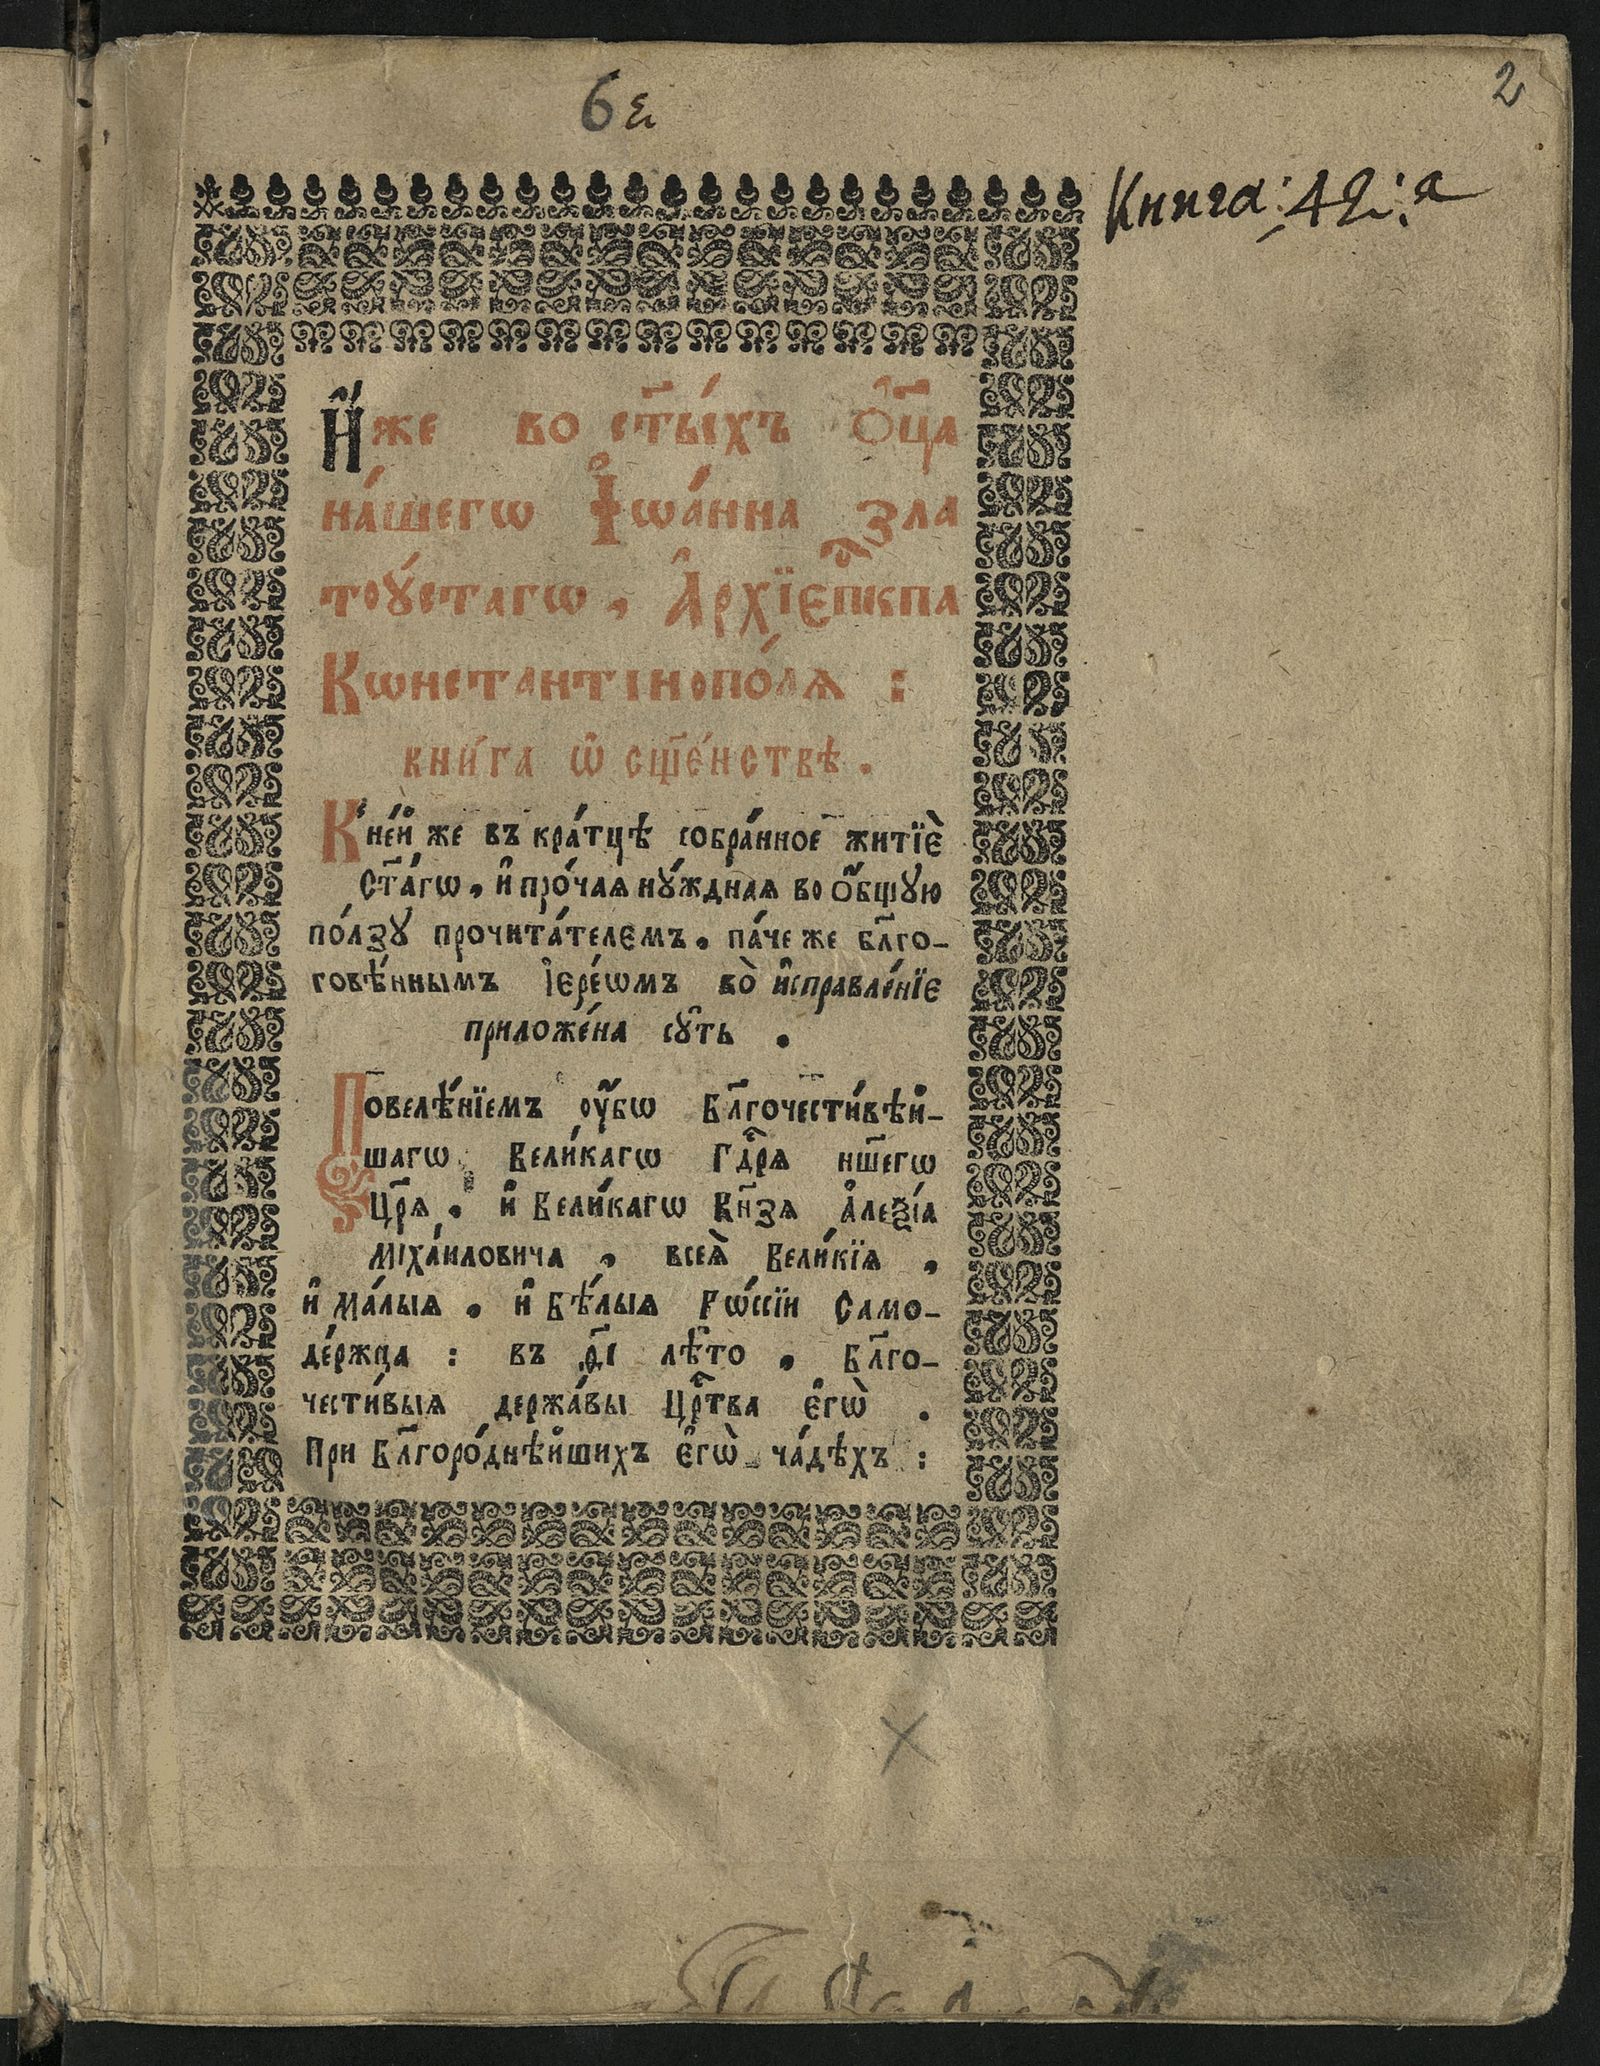 2
6
Книга: 42:а
И҆́же во ст҃ы́хъ Ѻ҆ц҃а̀
на́шегѡ І҆ѡа́нна Зла
тоꙋ́стагѡ, А҆рхїєпⷭ҇кпа
Кѡнстантінопо́лѧ :
кни́га ѡ҆ сщ҃е́нствѣ.
К'не́й же въ кра́тцѣ собра́нное житїѐ
Ст҃а́гѡ, и҆ про́чаѧ нꙋ́жднаѧ во Ѻ҆́бщꙋю
по́лзꙋ прочита́телємъ. па́че же бл҃го-
говѣ́ннымъ І҆єре́ѡмъ во̀ и҆справле́нїє
приложе́на сꙋ́ть .
Повелѣ́нїемъ ᲂу҆́бѡ Бл҃гочести́вѣй-
шагѡ Вели́кагѡ Гдⷭ҇рѧ нш҃егѡ
Цр҃ѧ. и҆ Вели́кагѡ Кн҃зѧ А҆леѯі́а
Міха́иловича, всеѧ̀ Вели́кїѧ,
и҆ Ма́лыѧ. и҆ Бѣ́лыѧ Рѡ́ссїи Само-
де́ржца : въ к҃і лѣ́то, Бл҃го-
чести́выѧ держа́вы Црⷭ҇тва є҆гѡ̀ .
При Бл҃горо́днѣйшихъ є҆гѡ̀ ча́дѣхъ :